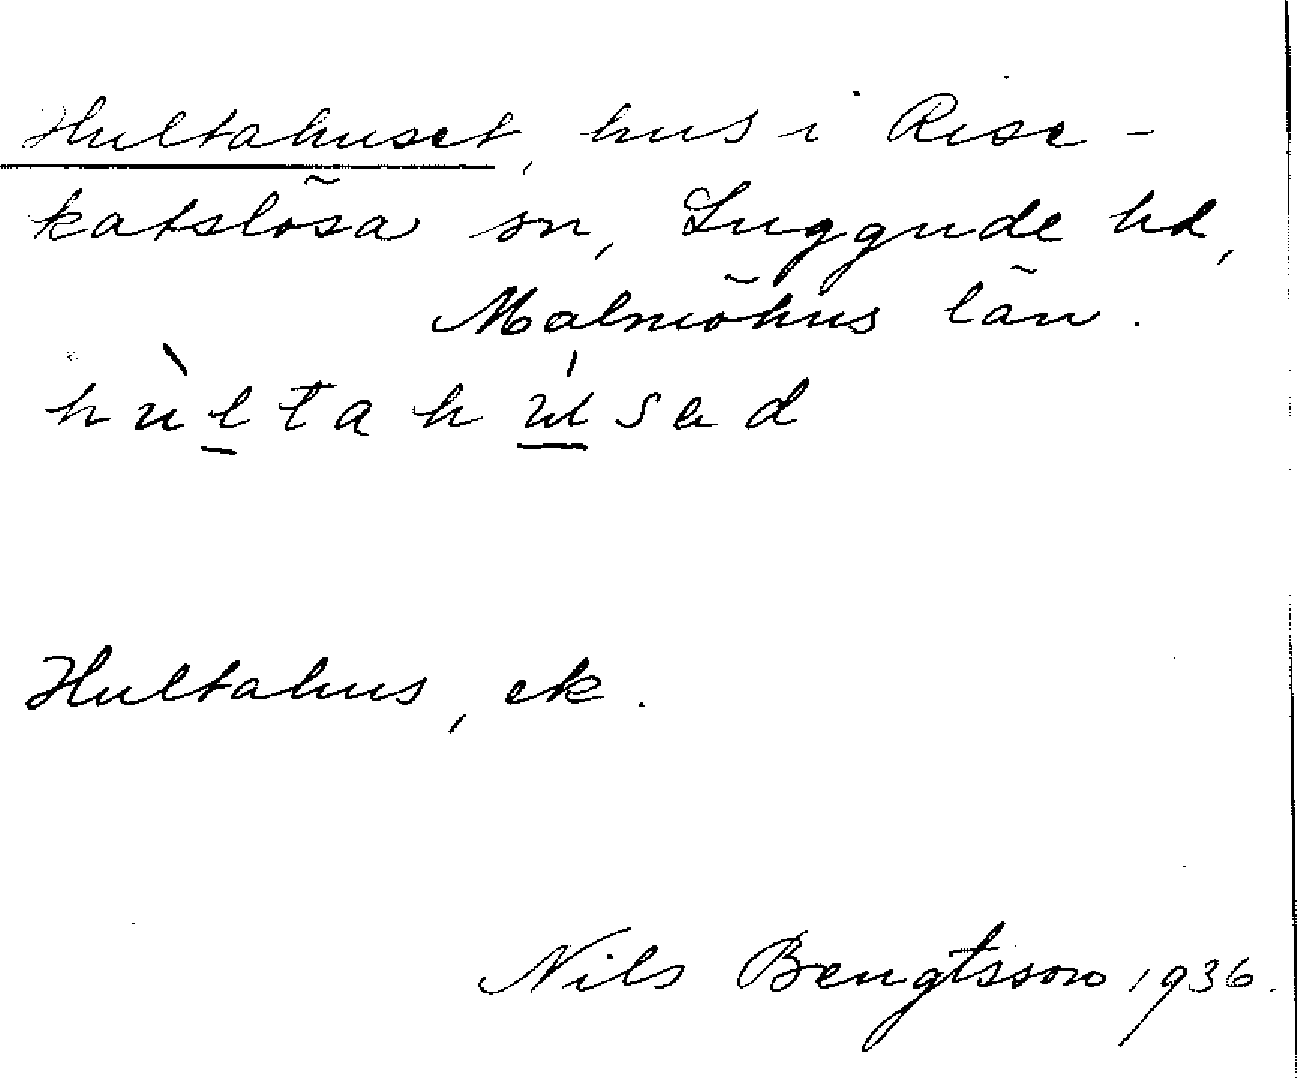 Hultahuset, hus i Rise-
katslösa sn, Luggude hd,
Malmöhus län.
hùltahúsad
Hultahus, ek.
Nils Bengtsson 1936.